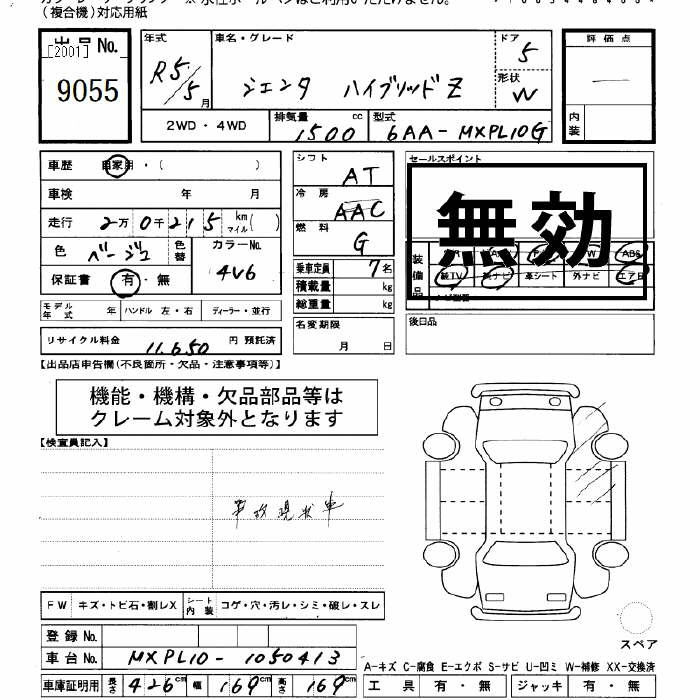 (複合機)対応用紙
出品 No.
[2001]
9055
年式
R5/5月
車名・グレード
シエンタ ハイブリッドZ
ドア
5
形状
W
評価点
内装
2WD・4WD
排気量
1500 cc
型式
6AA-MXPL10G
車歴 自家用・( )
車検 年 月
走行 2万0千215 km マイル( )
色 ベージュ
色替
カラーNo.
4V6
保証書 有・無
モデル年式 年 ハンドル 左・右 ディーラー・並行
リサイクル料金 11,650 円 預託済
シフト
AT
冷房
AAC
燃料
G
乗車定員 7名
積載量 kg
総重量 kg
名変期限
月 日
セールスポイント
無効
装備品
ABS
革シート 外ナビ
後日品
【出品店申告欄(不良箇所・欠品・注意事項等)】
機能・機構・欠品部品等は
クレーム対象外となります
【検査員記入】
事故現状車
FW キズ・トビ石・割レX シート内装 コゲ・穴・汚レ・シミ・破レ・スレ
登録No.
車台No. MXPL10-1050413
車庫証明用 長さ 426cm 幅 169cm 高さ 169cm
スペア
A-キズ C-腐食 E-エクボ S-サビ U-凹ミ W-補修 XX-交換済
工具 有・無 ジャッキ 有・無